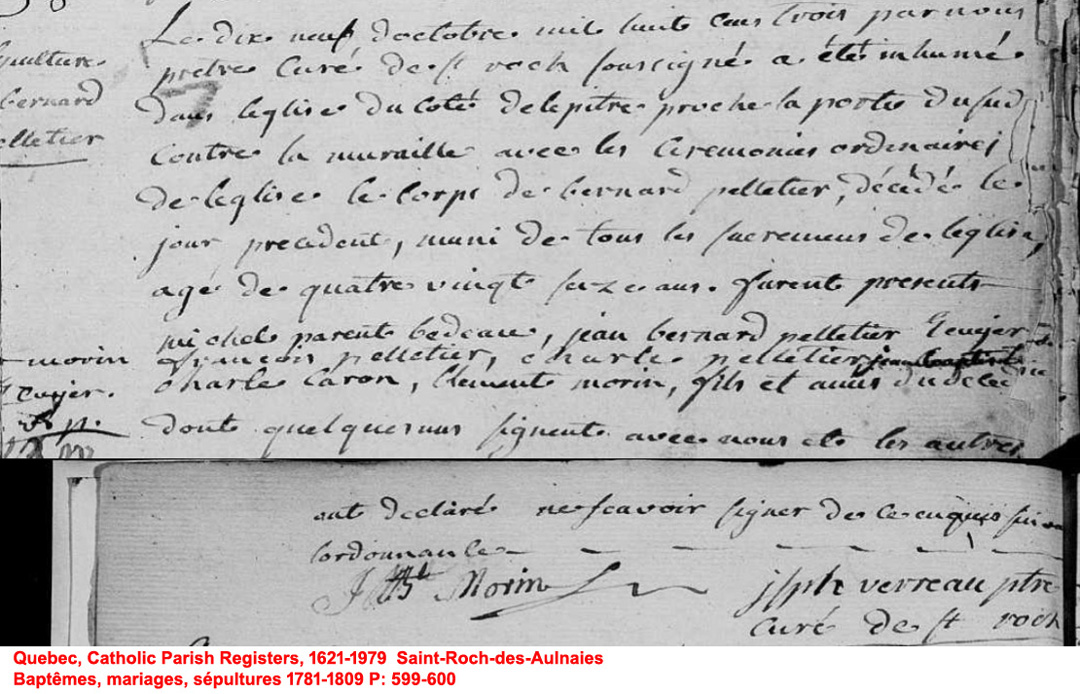 sepulture
bernard
pelletier
Le dix neuf doctobre mil huit cens trois par nous
pretre Curé de st roch soussigné a été inhumé
dans leglise du coté delepitre proche la porte du sud
Contre la muraille avec les Ceremonies ordinaires
de leglise le Corps de bernard pelletier, décédé le
jour precedent, muni de tous les sacremens de leglise,
agé de quatre vingt seize ans. furent presents
michel parent bedeau, jean bernard pelletier Ecuyer
françois pelletier, charle pelletier
charle Caron, Clement morin, fils et amis du
morin
Ecuyer.
dont quelquesuns signent avec nous et les autres
ont declaré ne scavoir signer de ce enquis
lordonnance
J Bt Morin
jsph verreau ptre
Curé de st roch
Quebec, Catholic Parish Registers, 1621-1979 Saint-Roch-des-Aulnaies
Baptêmes, mariages, sépultures 1781-1809 P: 599-600